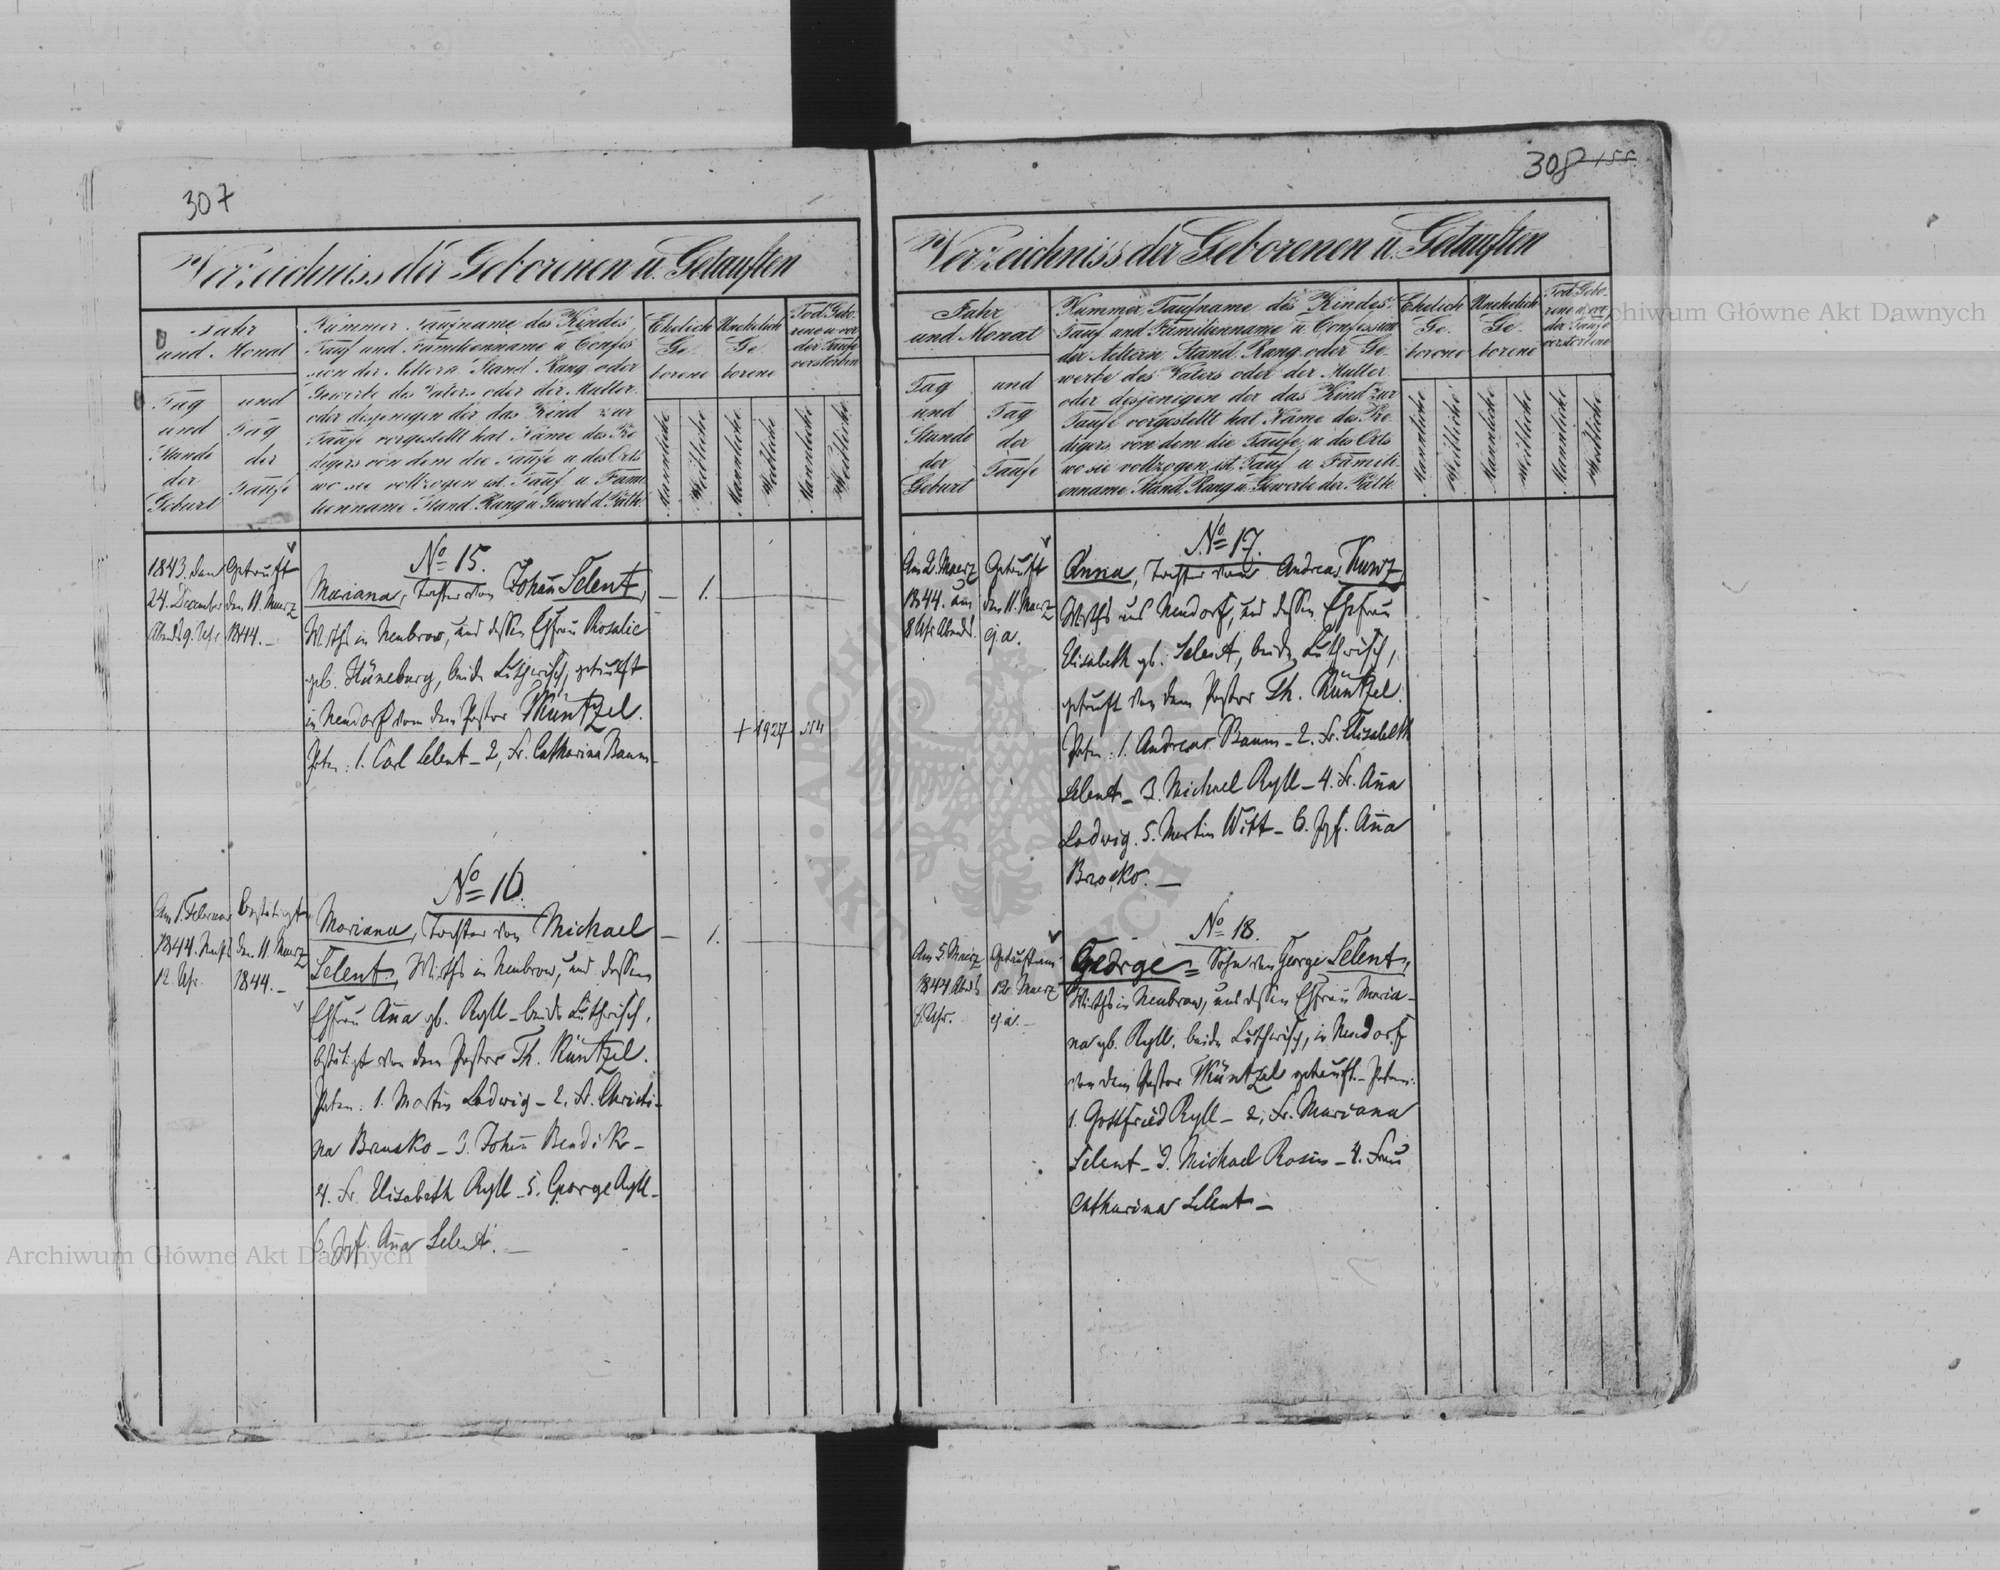 307
Verzeichniss der Geborenen u. Getauften
Jahr
und Monat
Tag
und
Stunde
der
Geburt
und
Tag
der
Taufe
Nummer Taufname des Kindes,
Tauf und Familienname u Confes
sion der Aeltern Stand Rang oder
Gewerbe des Vaters oder der Mutter
oder desjenigen der das Kind zur
Taufe vorgestellt hat Name des Pre
digers von dem die Taufe u des Orts
wo sie vollzogen ist Tauf u Fami
lienname Stand Rang u Gewerb d. Path.
Ehelich
Ge
borene
Unehelich
Ge
borene
Tod Gebo-
rene u. vor
der Taufe
verstorben
Mannliche
Weibliche
Mannliche
Weibliche
Mannliche
Weibliche
1843. den
24. December
Abends 9. Uhr
Getauft
den 11. Maerz
1844. _
No 15.
Mariana, Tochter von Johañ Selent,
Wirths in Neubrow, und dessen Ehefrau Rosalie
geb. Hüneburg, beide Lutherisch, getauft
in Neudorf von dem Pastor Küntzel.
Paten: 1. Carl Selent _ 2, Fr. Catharina Baum _
1.
+ 1927
Am 1. Februar
1844.
12. Uhr.
bestätigt
den 11. Maerz
1844. _
No 16.
Mariana, Tochter von Michael
Selent, Wirths in Neubrow, und dessen
Ehefrau Aña gb. Ryll _ beide Lutherisch,
bestätigt von dem Pastor Th. Küntzel.
Paten: 1. Martin Ladwig _ 2. Fr. Christi-
na Brusko _ 3. Johañ Bendik _
4. Fr. Elisabeth Ryll _ 5. George Ryll _
6. Jgf. Aña Selent. _
1.
308
Verzeichniss der Geborenen u. Getauften
Jahr
und Monat
Tag
und
Stunde
der
Geburt
und
Tag
der
Taufe
Nummer Taufname des Kindes
Tauf und Familienname u. Confession
der Aeltern Stand, Rang oder Ge-
werbe des Vaters oder der Mutter
oder desjenigen der das Kind zur
Taufe vorgestellt hat Name des Pre-
digers, von dem die Taufe u des Orts
wo sie vollzogen ist, Tauf u Famili-
enname Stand, Rang u. Gewerbe der Path.
Ehelich
Ge-
borene
Unehelich
Ge-
borene
Tod Gebo-
rene u. vor
der Taufe
verstorbene
Mannliche
Weibliche
Mannliche
Weibliche
Mannliche
Weibliche
Am 2. Maerz
1844. um
8 Uhr Abends.
Getauft
den 11. Maerz
ej. a.
No 17.
Anna, Tochter von Andreas Kurz
Wirths aus Neudorf, und dessen Ehefrau
Elisabeth gb. Selent, beide Lutherisch,
getauft von dem Pastor Th. Küntzel.
Paten: 1. Andreas Baum _ 2. Fr. Elisabeth
Selent _ 3. Michael Ryll _ 4. Fr. Aña
Ladwig. 5. Martin Witt _ 6. Jgf. Aña
Brosko. _
Am 5. Maerz
1844 Abends
Uhr.
Getauft am
12. Maerz
ej. a. _
No 18.
George, Sohn von George Selent,
Wirths in Neubrow, und dessen Ehefrau Maria-
na gb. Ryll, beide Lutherisch, in Neudorf
von dem Pastor Küntzel getauft. _ Paten:
1. Gottfried Ryll _ 2, Fr. Mariana
Selent _ 3. Michael Rosin _ 4. Frau
Catharina Selent _
Archiwum Główne Akt Dawnych
Archiwum Główne Akt Dawnych